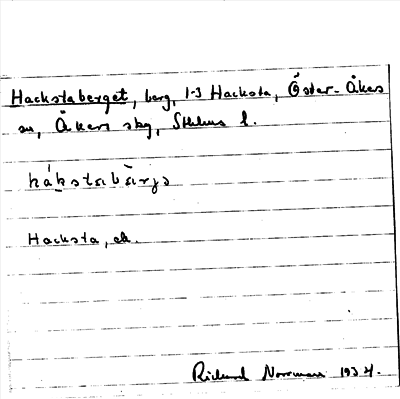 Hackstaberget, berg, 1-3 Hacksta, Öster-Åkers
sn, Åkers skg, Sthlms l.
hákstabàrjə
Hacksta, ek.
Rickard Norrman 1934.